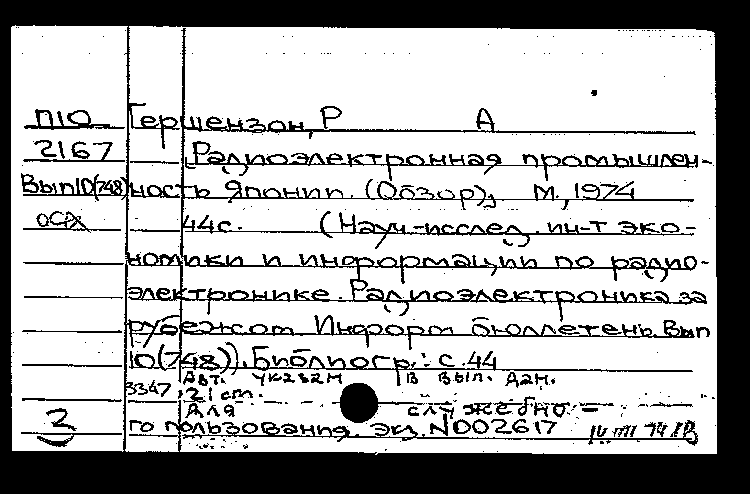 П10 Гершензон, Р А
2167 Радиоэлектронная промышлен-
Вып10(748) ность Японии. (Обзор), М., 1974
осх 44с. (Науч-исслед. ин-т эко-
номики и информации по радио-
электронике. Радиоэлектроника за
рубежом. Информ бюллетень. Вып
10(748)). Библиогр.: с.44
3347 Авт. указан В вып. дан.
21 ст.
Для служебно-
2 го пользования. экз. N002617